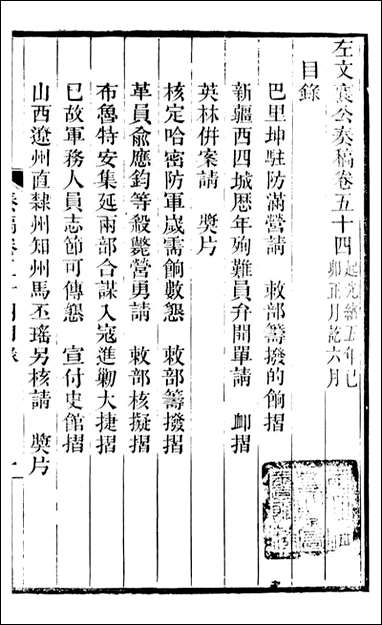 左文襄公奏稿卷五十四起光緒五年己卯正月訖六月
目錄
巴里坤駐防滿營請 敕部籌撥的餉摺
新疆西四城歷年殉難員弁開單請 卹摺
英林併案請 獎片
核定哈密防軍歲需餉數懇 敕部籌撥摺
革員俞應鈞等殺斃營勇請 敕部核擬摺
布魯特安集延兩部合謀入寇進勦大捷摺
已故軍務人員志節可傳懇 宣付史館摺
山西遼州直隸州知州馬丕瑤另核請 獎片
奏稿卷五十四目錄 一